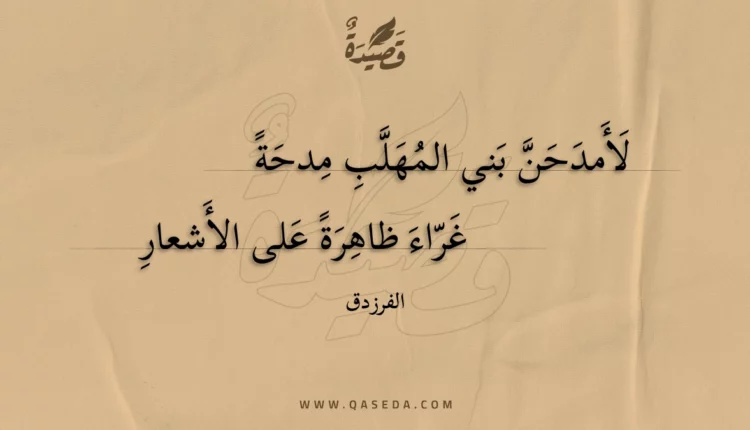 قَصِيْدَةٌ
لَأَمدَحَنَّ بَني المُهَلَّبِ مِدحَةً
غَرّاءَ ظاهِرَةً عَلى الأَشعارِ
الفرزدق
WWW.QASEDA.COM